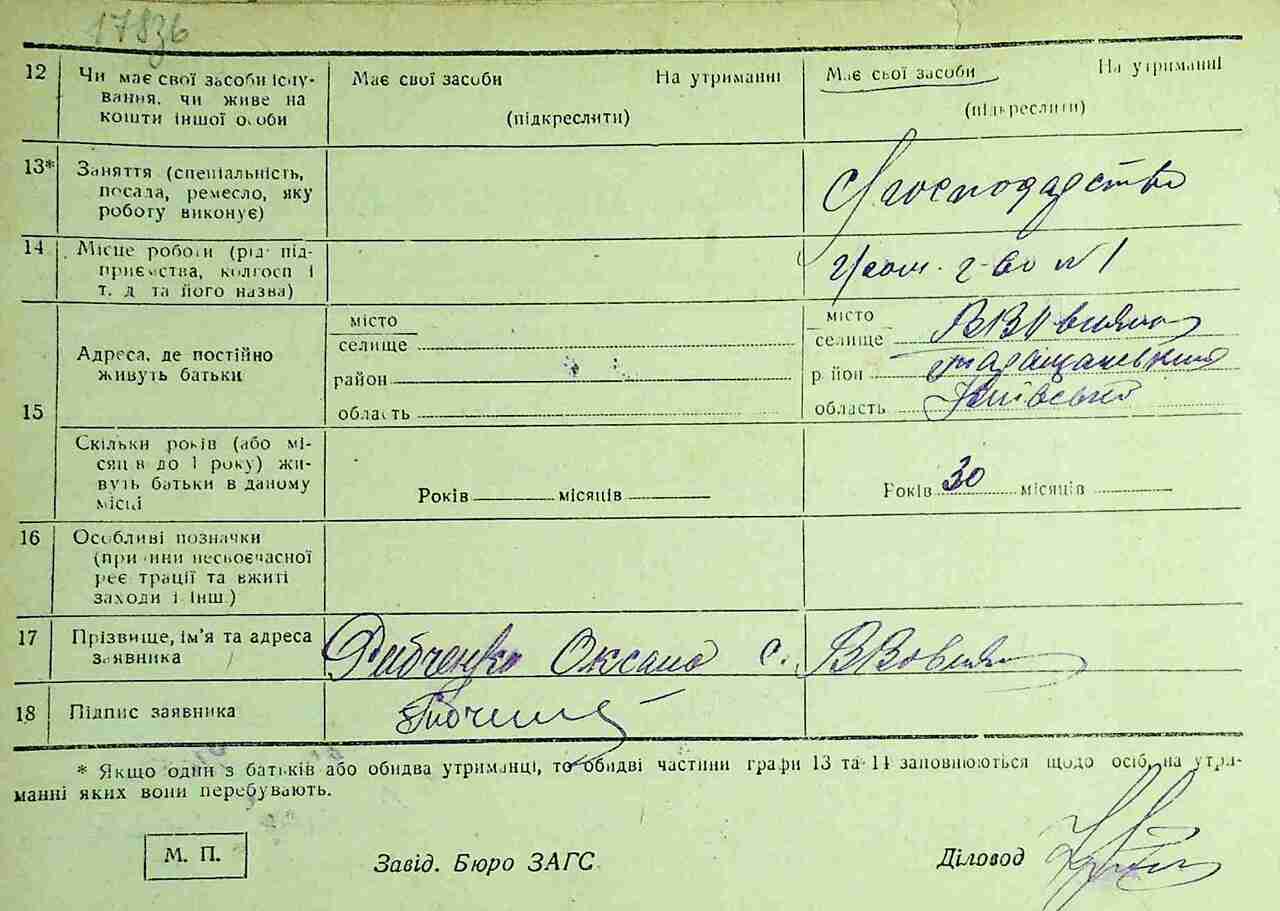 178зб
12 Чи має свої засоби існу- Має свої засоби На утриманні Має свої засоби На утриманні
вання, чи живе на
кошти іншої особи (підкреслити) (підкреслити)
13* Заняття (спеціальність,
посада, ремесло, яку господарство
роботу виконує)
14 Місце роботи (рід під-
приємства, колгосп і г-во №1
т. д та його назва)
15 Адреса, де постійно
живуть батьки
місто місто
селище селище
район район Таращанський
область область Київської
Скільки років (або мі-
сяців до 1 року) жи-
вуть батьки в даному
місці
Років місяців Років 30 місяців
16 Особливі позначки
(причини несвоєчасної
реєстрації та вжиті
заходи і інш.)
17 Прізвище, ім'я та адреса
заявника Рибченко Оксана с.
18 Підпис заявника
* Якщо один з батьків або обидва утриманці, то обидві частини графи 13 та 14 заповнюються щодо осіб, на утри-
манні яких вони перебувають.
М. П. Завід. Бюро ЗАГС Діловод